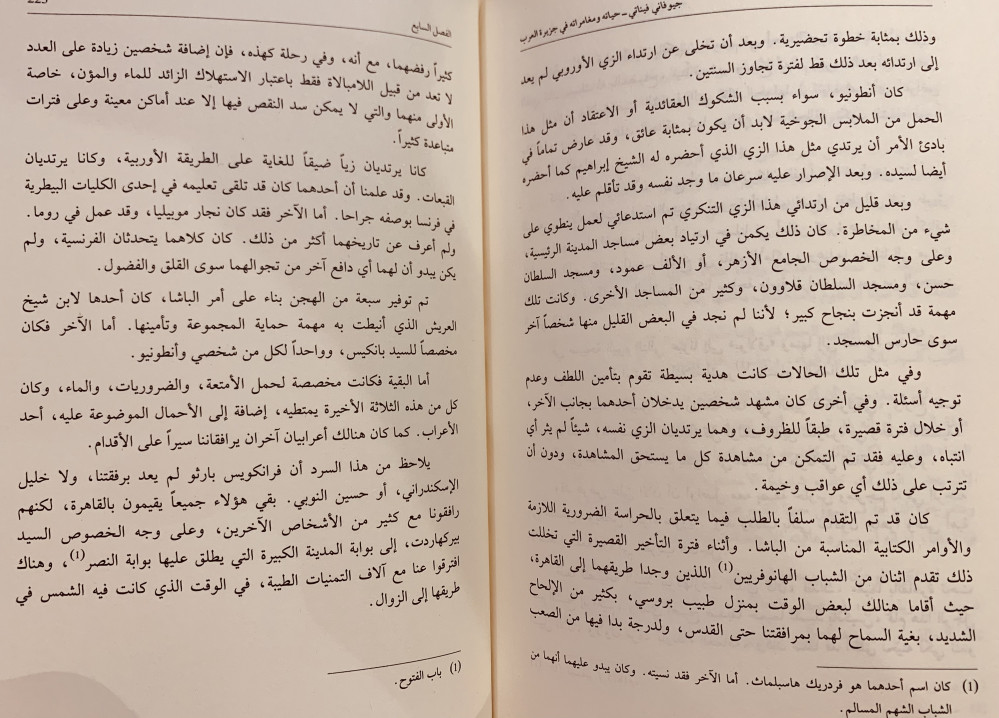 جيوفاني فيناتي - حياته ومغامراته في جزيرة العرب
وذلك بمثابة خطوة تحضيرية. وبعد أن تخلى عن ارتداء الزي الأوروبي لم يعد
إلى ارتدائه بعد ذلك قط لفترة تجاوز السنتين.
كان أنطونيو، سواء بسبب الشكوك العقائدية أو الاعتقاد أن مثل هذا
الحمل من الملابس الجوخية لابد أن يكون بمثابة عائق، وقد عارض تماماً في
بادئ الأمر أن يرتدي مثل هذا الزي الذي أحضره له الشيخ إبراهيم كما أحضره
أيضا لسيده. وبعد الإصرار عليه سرعان ما وجد نفسه وقد تأقلم عليه.
وبعد قليل من ارتدائي هذا الزي التنكري تم استدعائي لعمل ينطوي على
شيء من المخاطرة. كان ذلك يكمن في ارتياد بعض مساجد المدينة الرئيسية،
وعلى وجه الخصوص الجامع الأزهر، أو الألف عمود، ومسجد السلطان
حسن، ومسجد السلطان قلاوون، وكثير من المساجد الأخرى. وكانت تلك
مهمة قد أنجزت بنجاح كبير؛ لأننا لم نجد في البعض القليل منها شخصاً آخر
سوى حارس المسجد.
وفي مثل تلك الحالات كانت هدية بسيطة تقوم بتأمين اللطف وعدم
توجيه أسئلة. وفي أخرى كان مشهد شخصين يدخلان أحدهما بجانب الآخر،
أو خلال فترة قصيرة، طبقاً للظروف، وهما يرتديان الزي نفسه، شيئاً لم يثر أي
انتباه، وعليه فقد تم التمكن من مشاهدة كل ما يستحق المشاهدة، ودون أن
تترتب على ذلك أي عواقب وخيمة.
كان قد تم التقدم سلفاً بالطلب فيما يتعلق بالحراسة الضرورية اللازمة
والأوامر الكتابية المناسبة من الباشا. وأثناء فترة التأخير القصيرة التي تخللت
ذلك تقدم اثنان من الشباب الهانوفريين(1) اللذين وجدا طريقهما إلى القاهرة،
حيث أقاما هنالك لبعض الوقت بمنزل طبيب بروسي، بكثير من الإلحاح
الشديد، بغية السماح لهما بمرافقتنا حتى القدس، ولدرجة بدا فيها من الصعب
(1) كان اسم أحدهما هو فردريك هاسبلماث. أما الآخر فقد نسيته. وكان يبدو عليهما أنهما من
الشباب الشهم المسالم.
الفصل السابع
كثيراً رفضهما، مع أنه، وفي رحلة كهذه، فإن إضافة شخصين زيادة على العدد
لا تعد من قبيل اللامبالاة فقط باعتبار الاستهلاك الزائد للماء والمؤن، خاصة
الأولى منهما والتي لا يمكن سد النقص فيها إلا عند أماكن معينة وعلى فترات
متباعدة كثيراً.
كانا يرتديان زياً ضيقاً للغاية على الطريقة الأوربية، وكانا يرتديان
القبعات. وقد علمنا أن أحدهما كان قد تلقى تعليمه في إحدى الكليات البيطرية
في فرنسا بوصفه جراحا. أما الآخر فقد كان نجار موبيليا، وقد عمل في روما.
ولم أعرف عن تاريخهما أكثر من ذلك. كان كلاهما يتحدثان الفرنسية، ولم
يكن يبدو أن لهما أي دافع آخر من تجوالهما سوى القلق والفضول.
تم توفير سبعة من الهجن بناء على أمر الباشا، كان أحدها لابن شيخ
العريش الذي أنيطت به مهمة حماية المجموعة وتأمينها. أما الآخر فكان
مخصصاً للسيد بانكيس، وواحداً لكل من شخصي وأنطونيو.
أما البقية فكانت مخصصة لحمل الأمتعة، والضروريات، والماء، وكان
كل من هذه الثلاثة الأخيرة يمتطيه، إضافة إلى الأحمال الموضوعة عليه، أحد
الأعراب. كما كان هنالك أعرابيان آخران يرافقاننا سيراً على الأقدام.
يلاحظ من هذا السرد أن فرانكويس بارثو لم يعد برفقتنا، ولا خليل
الإسكندراني، أو حسين النوبي. بقي هؤلاء جميعاً يقيمون بالقاهرة، لكنهم
رافقونا مع كثير من الأشخاص الآخرين، وعلى وجه الخصوص السيد
بيركهاردت، إلى بوابة المدينة الكبيرة التي يطلق عليها بوابة النصر(1)، وهناك
افترقوا عنا مع آلاف التمنيات الطيبة، في الوقت الذي كانت فيه الشمس في
طريقها إلى الزوال.
(1) باب الفتوح.